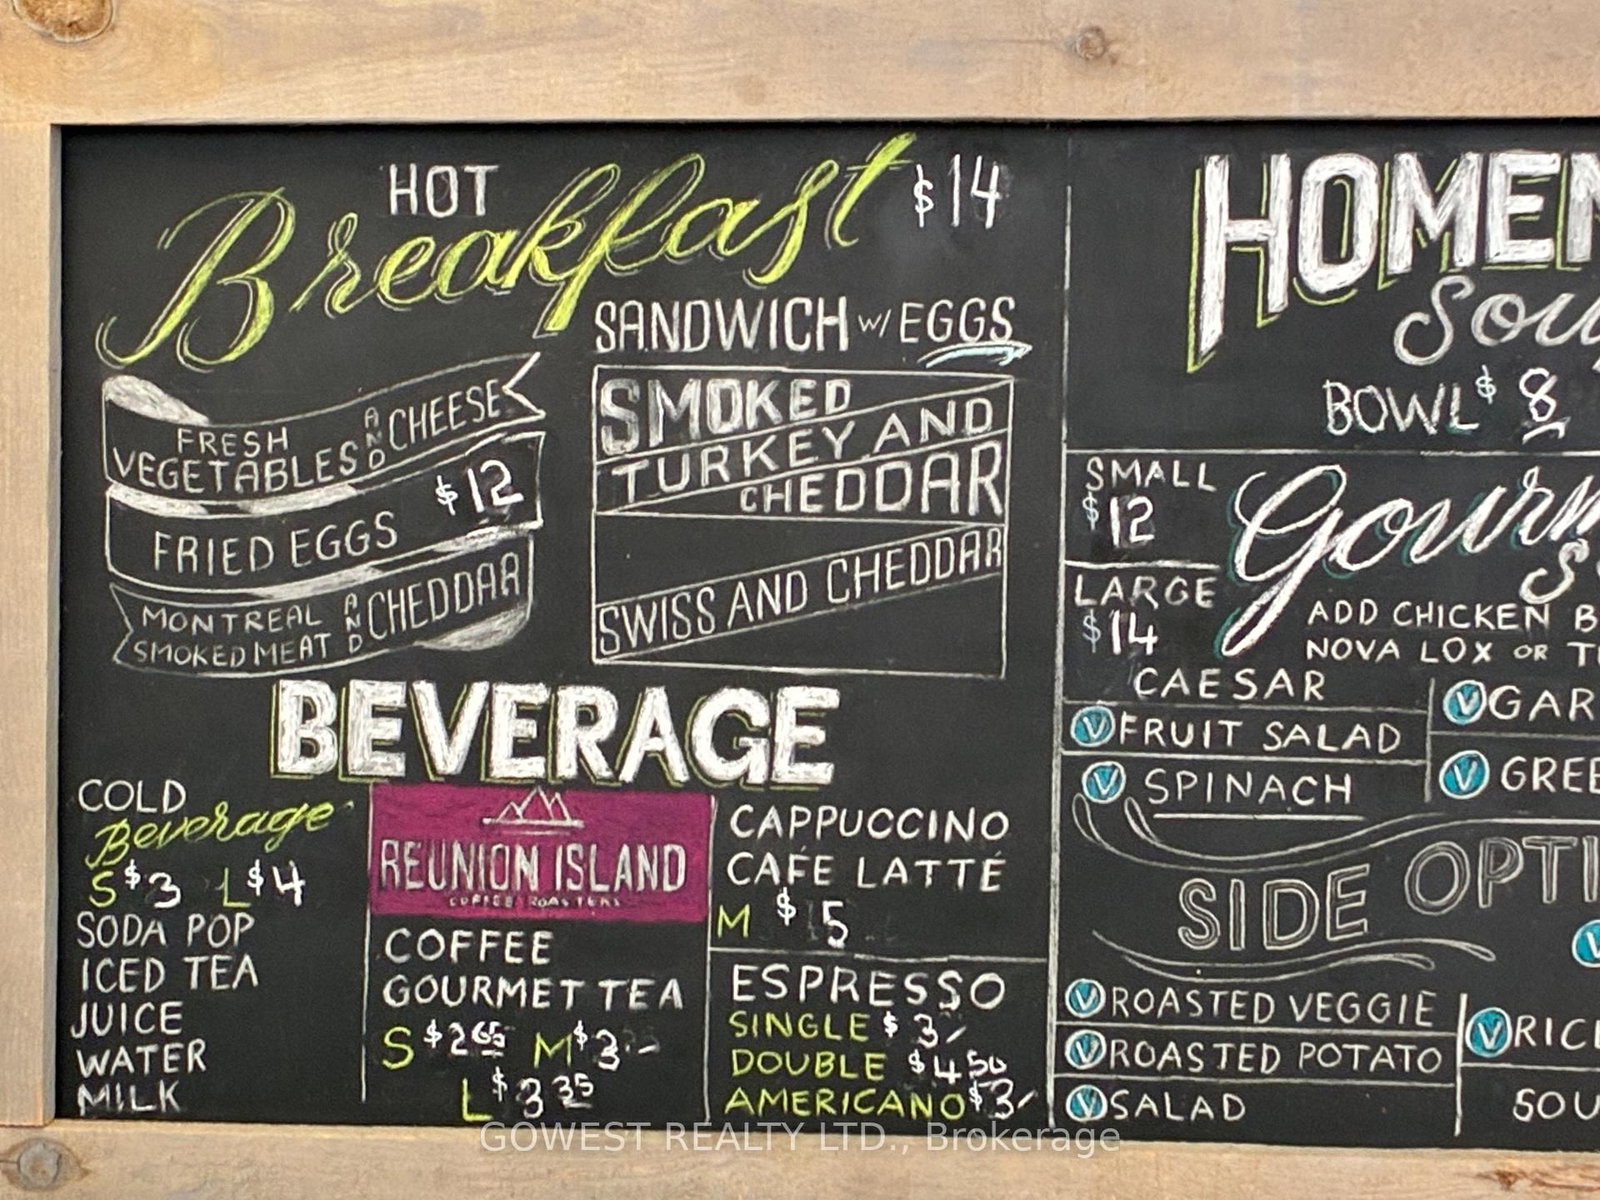 HOT
Breakfast $14
SANDWICH W/ EGGS
FRESH
VEGETABLES AND CHEESE
FRIED EGGS $12
MONTREAL
SMOKED MEAT AND CHEDDAR
SMOKED
TURKEY AND
CHEDDAR
SWISS AND CHEDDAR
BEVERAGE
COLD
Beverage
S $3 L $4
SODA POP
ICED TEA
JUICE
WATER
MILK
REUNION ISLAND
COFFEE ROASTERS
COFFEE
GOURMET TEA
S $2 65 M $3.-
L $3 35
CAPPUCCINO
CAFE LATTE
M $5
ESPRESSO
SINGLE $3/
DOUBLE $4 50
AMERICANO $3/
HOMEM
Sou
BOWL $8
SMALL
$12
LARGE
$14
Gourm
ADD CHICKEN B
NOVA LOX OR T
CAESAR
V FRUIT SALAD
V SPINACH
V GAR
V GREE
SIDE OPTI
V
V ROASTED VEGGIE
V ROASTED POTATO
V SALAD
V RIC
SOU
GOWEST REALTY LTD., Brokerage